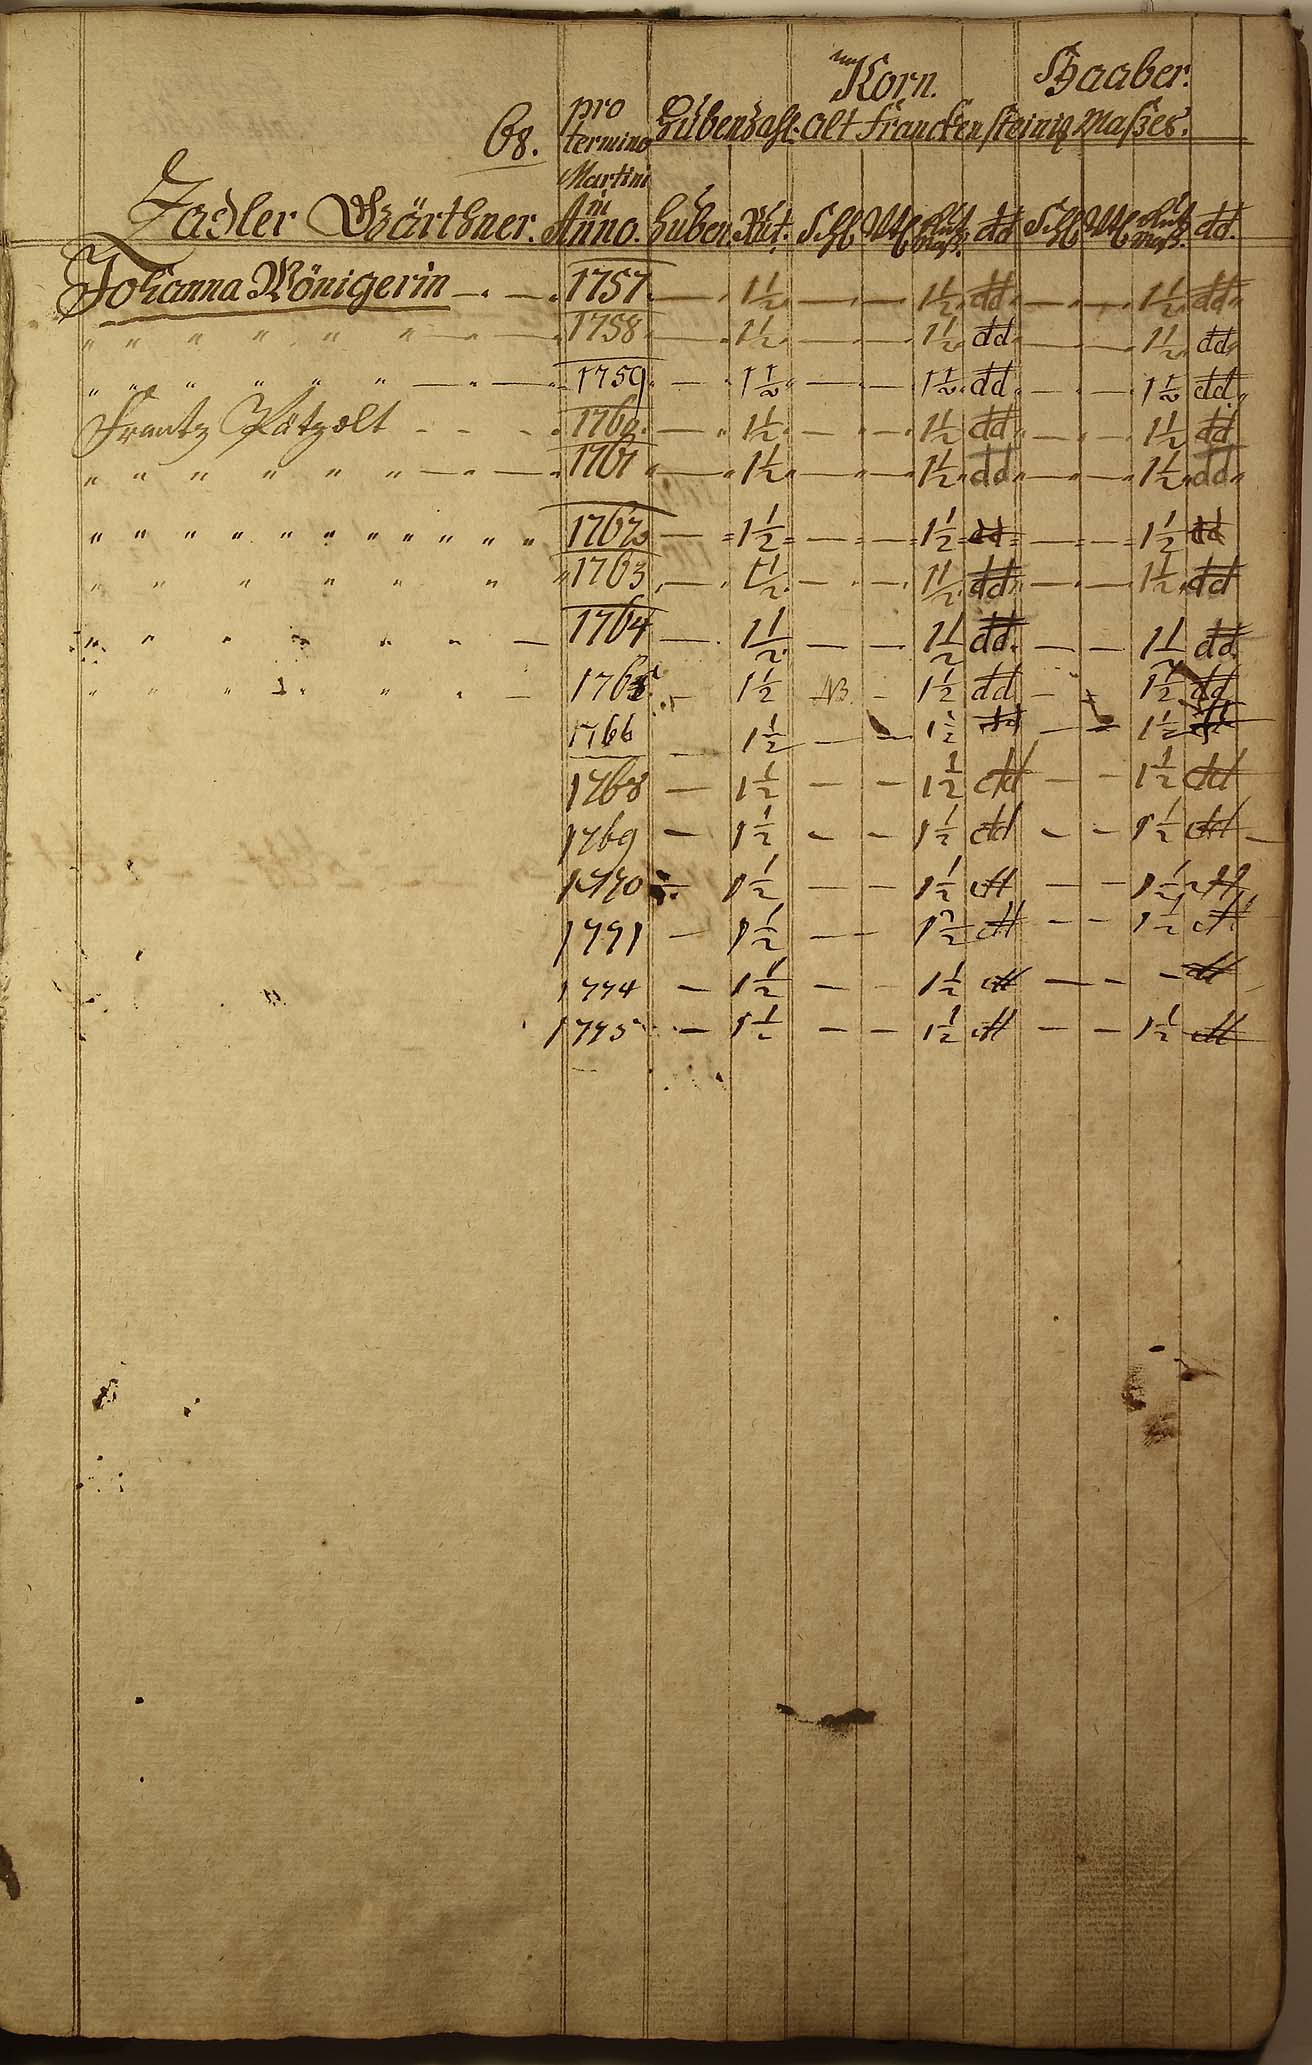 Korn. Haaber.
68. pro termino Martini in Anno. Hubenzahl. alt Franckensteinis Maßes.
Zadler Gärthner. Huben. Rut. Schl Mtl Maß. dd Schl Mtl Maß. dd.
Johanna Königerin — . — . 1757. — . 1½ . — . — . 1½ . dd . — . — . 1½ . dd
" " " " " " — . — . 1758 — . 1½ . — — . 1½ . dd . — — . 1½ . dd
" " " " " " — . — . 1759 . — . 1½ . — . — . 1½ . dd . — . — . 1½ dd.
Frantz Pätzolt - - - . 1760. — . 1½ . — . — . 1½ dd . — . — . 1½ dd
" " " " " " — . — . 1761 . — . 1½ . — . — . 1½ . dd . — . — . 1½ . dd
" " " " " " " " " " " " 1762 — = 1½ = — . — = 1½ = dd = — . — = 1½ dd
" " " " " " " 1763 . — . 1½ . — . — . 1½ . dd . — . — 1½ . dd
" " " " " " " — 1764 — . 1½ . — — 1½ dd. — — 1½ dd
" " " " " " — 1765 — 1½ NB. — 1½ dd — — 1½ dd
1766 — 1½ — — 1½ dd — — 1½ dd
1768 — 1½ — — 1½ dd — — 1½ dd
1769 — 1½ — — 1½ dd — — 1½ dd
1770 — 1½ — — 1½ dd — — 1½ dd
1771 — 1½ — — 1½ dd — — 1½ dd
1774 — 1½ — — 1½ dd — — — dd
1775 — 1½ — — 1½ dd — — 1½ dd